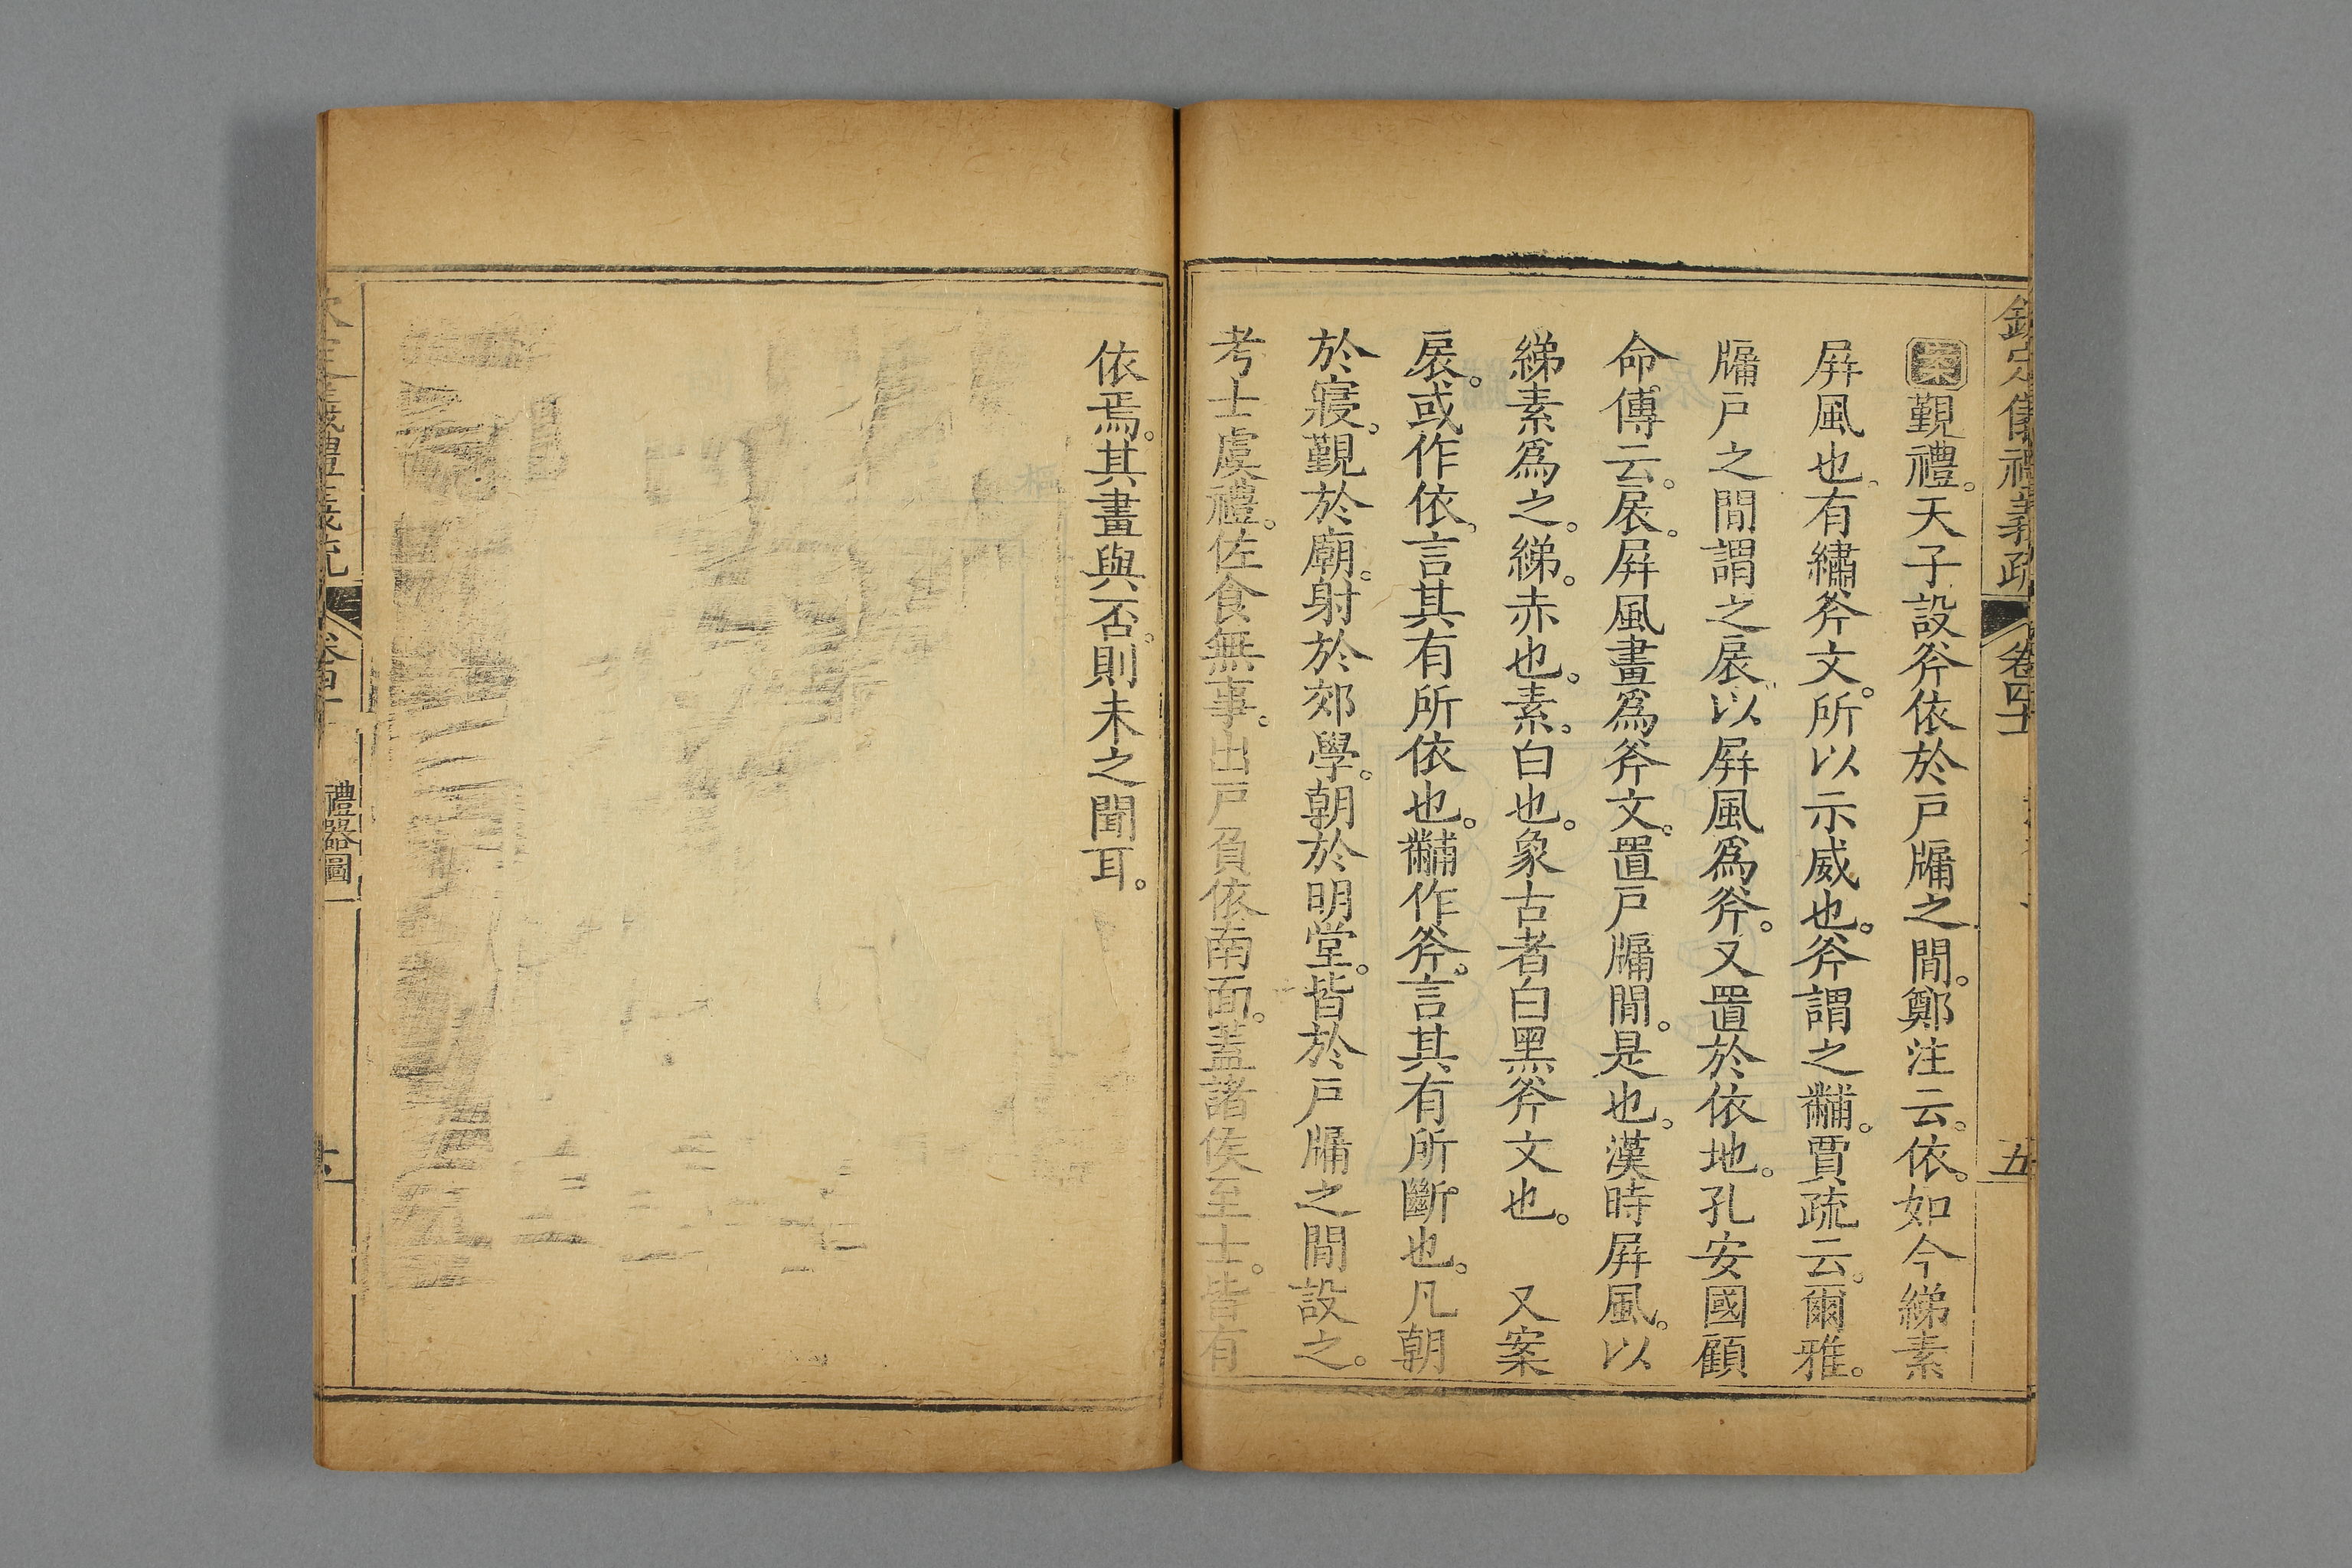 欽定儀禮義疏 卷四十 五
案覲禮。天子設斧依於戸牖之間。鄭注云。依。如今綈素
屛風也。有繡斧文。所以示威也。斧謂之黼。賈疏云。爾雅。
牖戸之間謂之扆。以屛風爲斧。又置於依地。孔安國顧
命傳云。扆。屛風畫爲斧文。置戸牖間。是也。漢時屛風。以
綈素爲之。綈。赤也。素。白也。象古者白黑斧文也。 又案
扆。或作依。言其有所依也。黼作斧。言其有所斷也。凡朝
於寢。覲於廟。射於郊學。朝於明堂。皆於戸牖之間設之。
考士虞禮。佐食無事。出戸負依南面。蓋諸侯至士。皆有
依焉。其畫與否。則未之聞耳。
禮器圖一